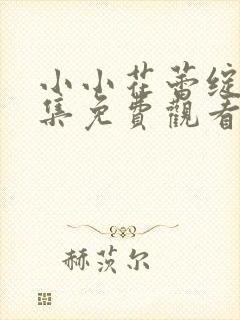 小小花蕾绽
集免費觀看
赫茨尔